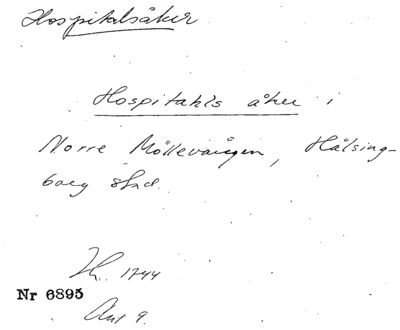 Hospitalsåker
Hospitahls åker i
Norre Möllevången, Hälsing-
borg stad.
1744
Nr 6895
Akt 9.